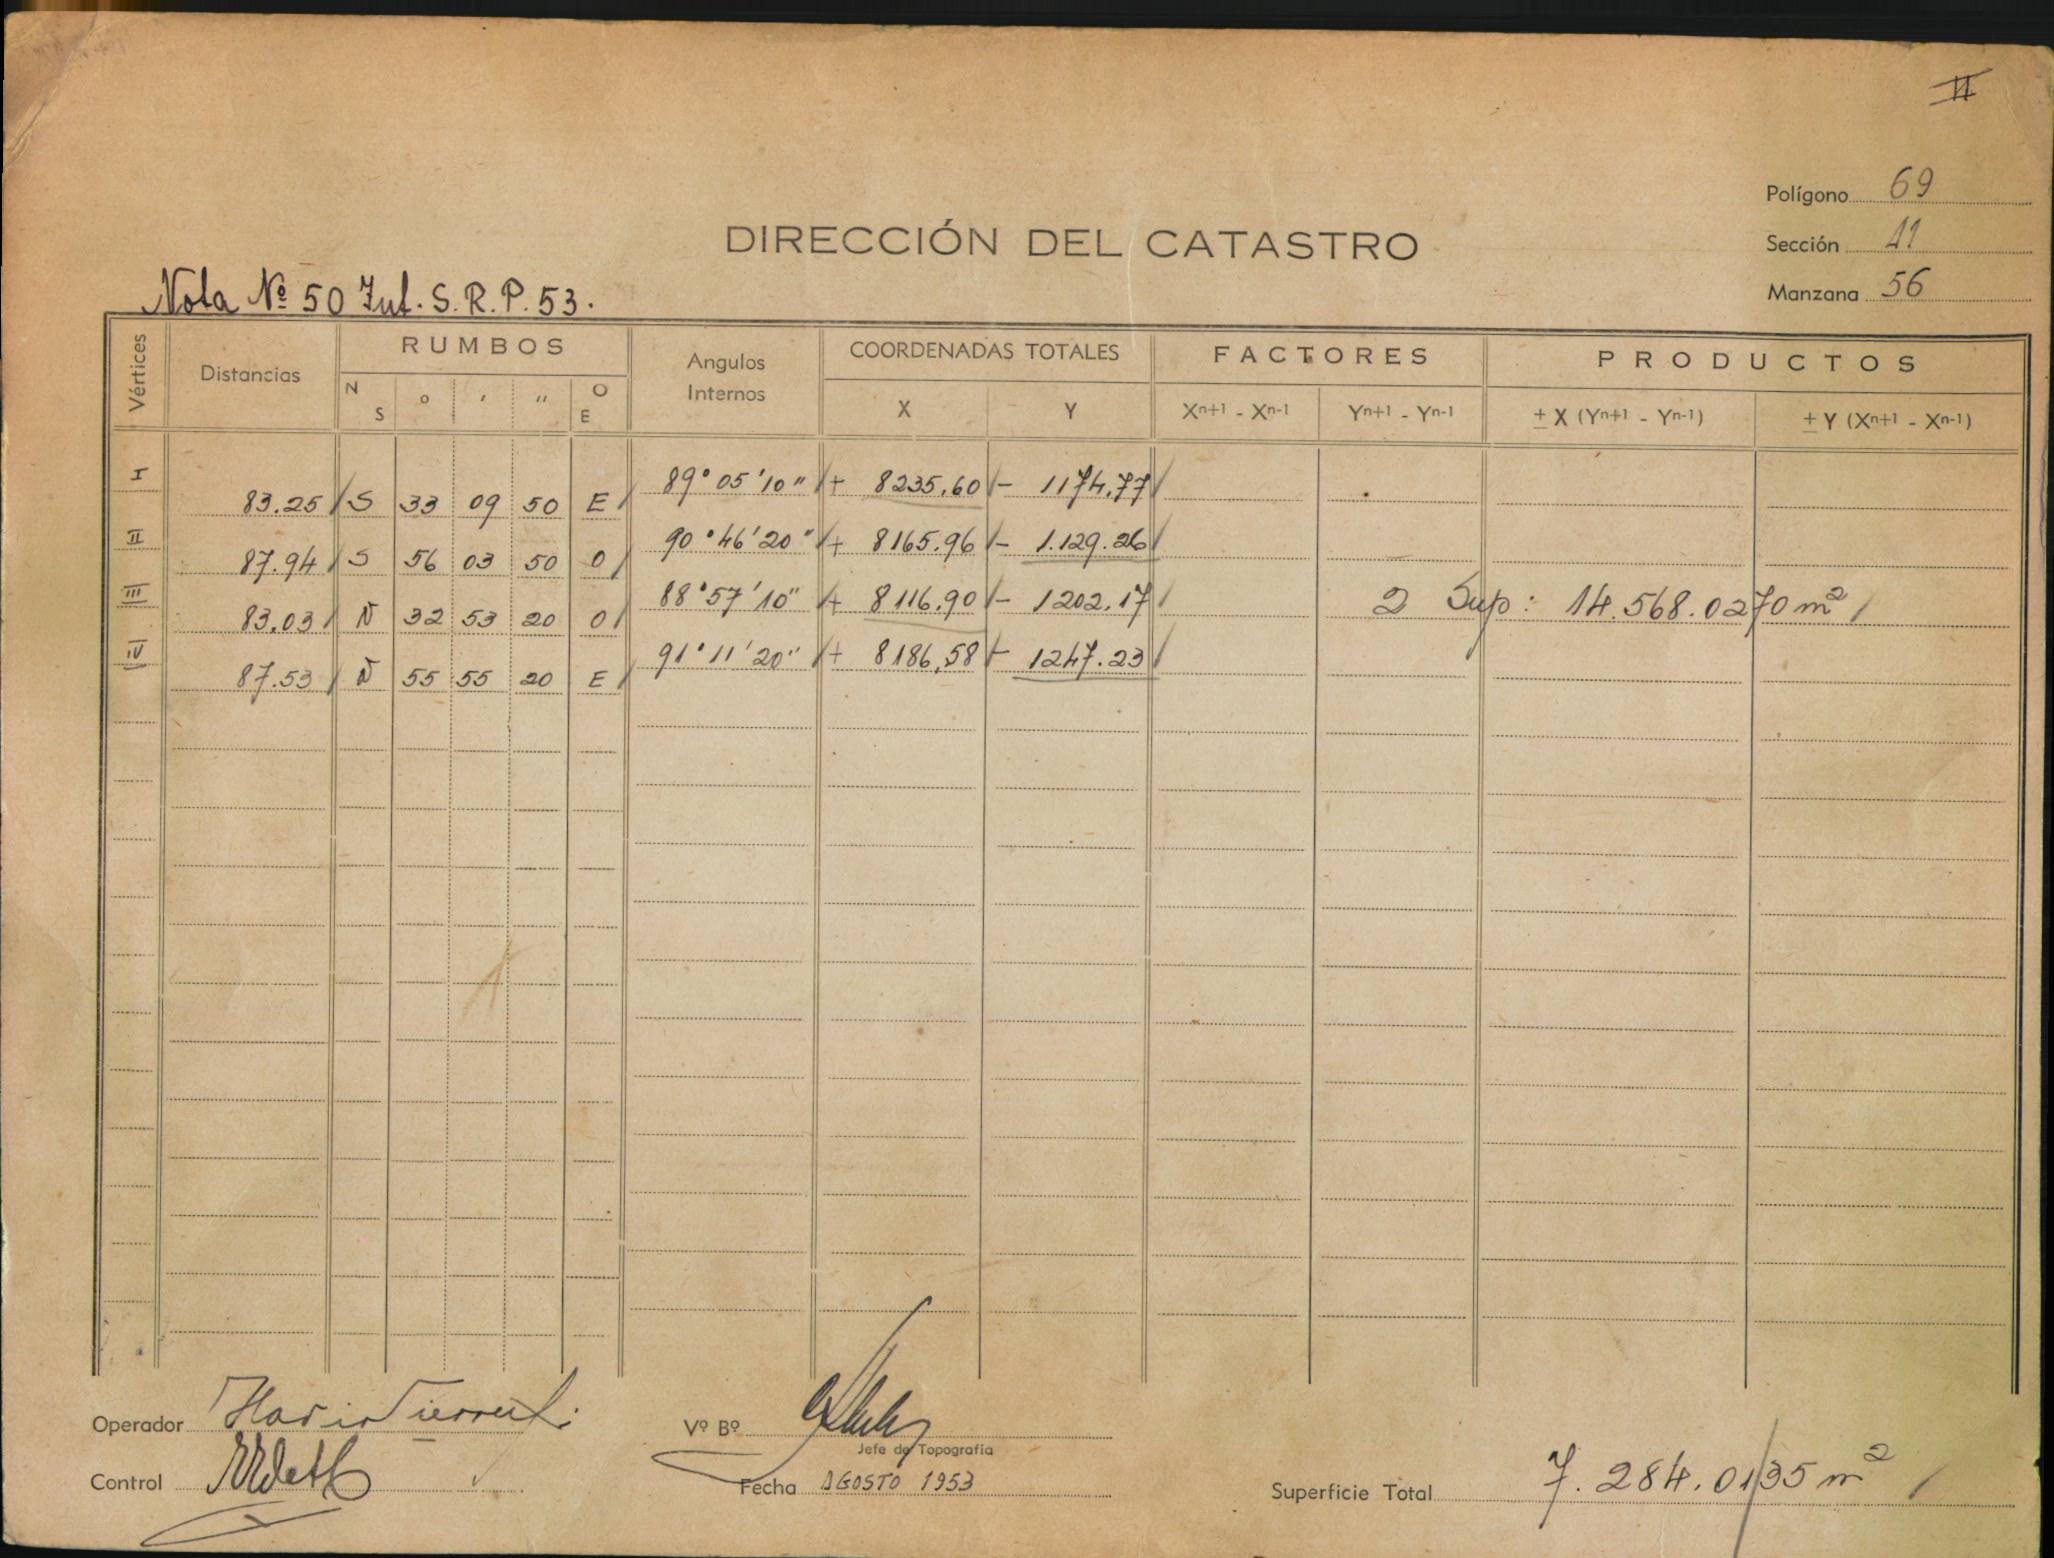 II
Polígono 69
Sección 11
Manzana 56
DIRECCIÓN DEL CATASTRO
Nota Nº 50 Int. S.R.P. 53.
Vértices Distancias RUMBOS Angulos Internos COORDENADAS TOTALES FACTORES PRODUCTOS
N S o ' '' O E X Y Xn+1 - Xn-1 Yn+1 - Yn-1 ± X (Yn+1 - Yn-1) ± Y (Xn+1 - Xn-1)
I 83.25 S 33 09 50 E 89° 05' 10" + 8235.60 - 1174.77
II 87.94 S 56 03 50 O 90° 46' 20" + 8165.96 - 1.129.26
III 83.03 N 32 53 20 O 88° 57' 10" + 8116.90 - 1202.17 2 Sup: 14.568.0270 m²
IV 87.53 N 55 55 20 E 91° 11' 20" + 8186.58 - 1247.23
Operador
Vº Bº
Jefe de Topografía
Control
Fecha AGOSTO 1953
Superficie Total 7.284.0135 m²